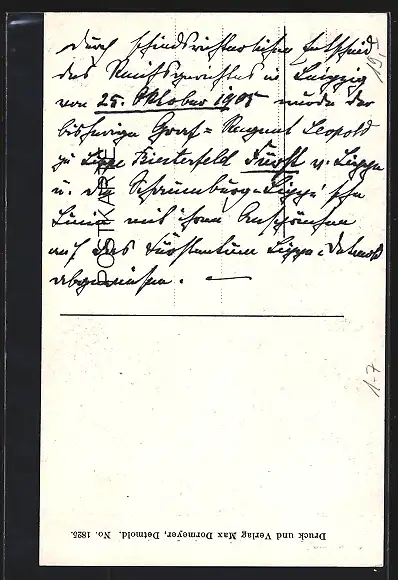 Durch schiedsrichterlichen Entscheid
des Reichsgerichtes in Leipzig
von 25. Oktober 1905 wurde der
bisherige Graf=Regent Leopold
zu Lippe Biesterfeld Fürst v. Lippe
u. die Schaumburg=Lippe'sche
Linie mit ihren Ansprüchen
auf das Fürstentum Lippe=Detmold
abgewiesen. —
POSTKARTE
1-7
Druck und Verlag Max Dormeyer, Detmold. No. 1825.